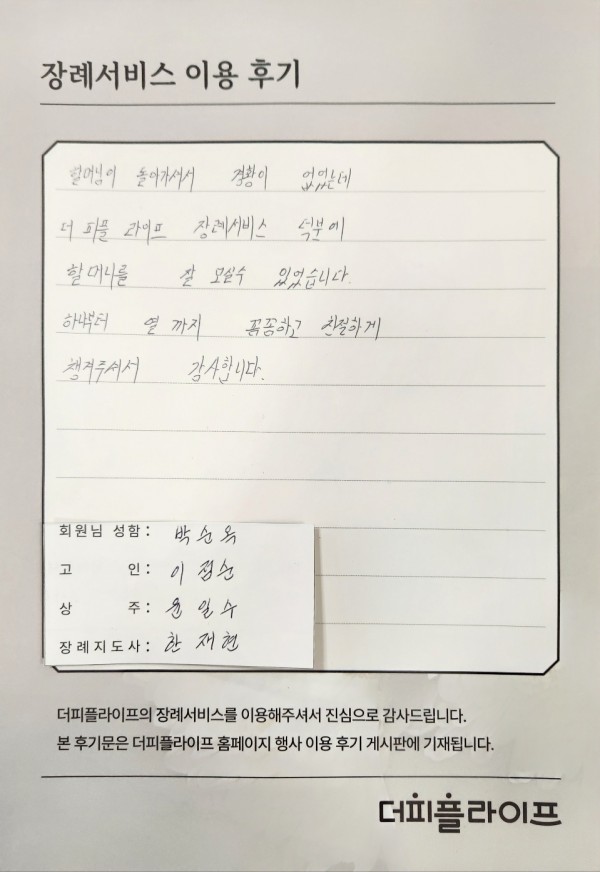 장례서비스 이용 후기
할머님이 돌아가셔서 경황이 없었는데
더 피플 라이프 장례서비스 덕분에
할머니를 잘 모실수 있었습니다.
하나부터 열 까지 꼼꼼하고 친절하게
챙겨주셔서 감사합니다.
회원님 성함: 박순옥
고 인: 이점순
상 주: 윤일수
장례지도사: 한재현
더피플라이프의 장례서비스를 이용해주셔서 진심으로 감사드립니다.
본 후기문은 더피플라이프 홈페이지 행사 이용 후기 게시판에 기재됩니다.
더피플라이프